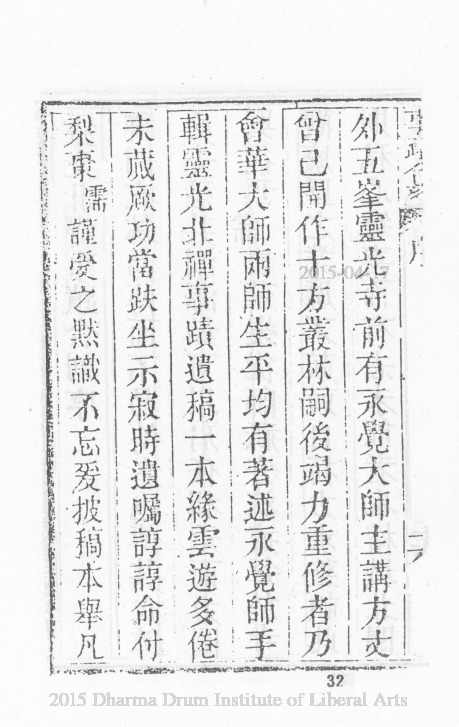 外五峯靈光寺前有永覺大師主講方丈
曾已開作十方叢林嗣後竭力重修者乃
會華大師兩師生平均有著述永覺師手
輯靈光北禪事蹟遺稿一本緣雲遊多倦
未蕆厥功當趺坐示寂時遺囑諄諄命付
梨棗儒謹受之默識不忘爰披稿本舉凡
序
二
32
2015-04-17
2015 Dharma Drum Institute of Liberal Arts